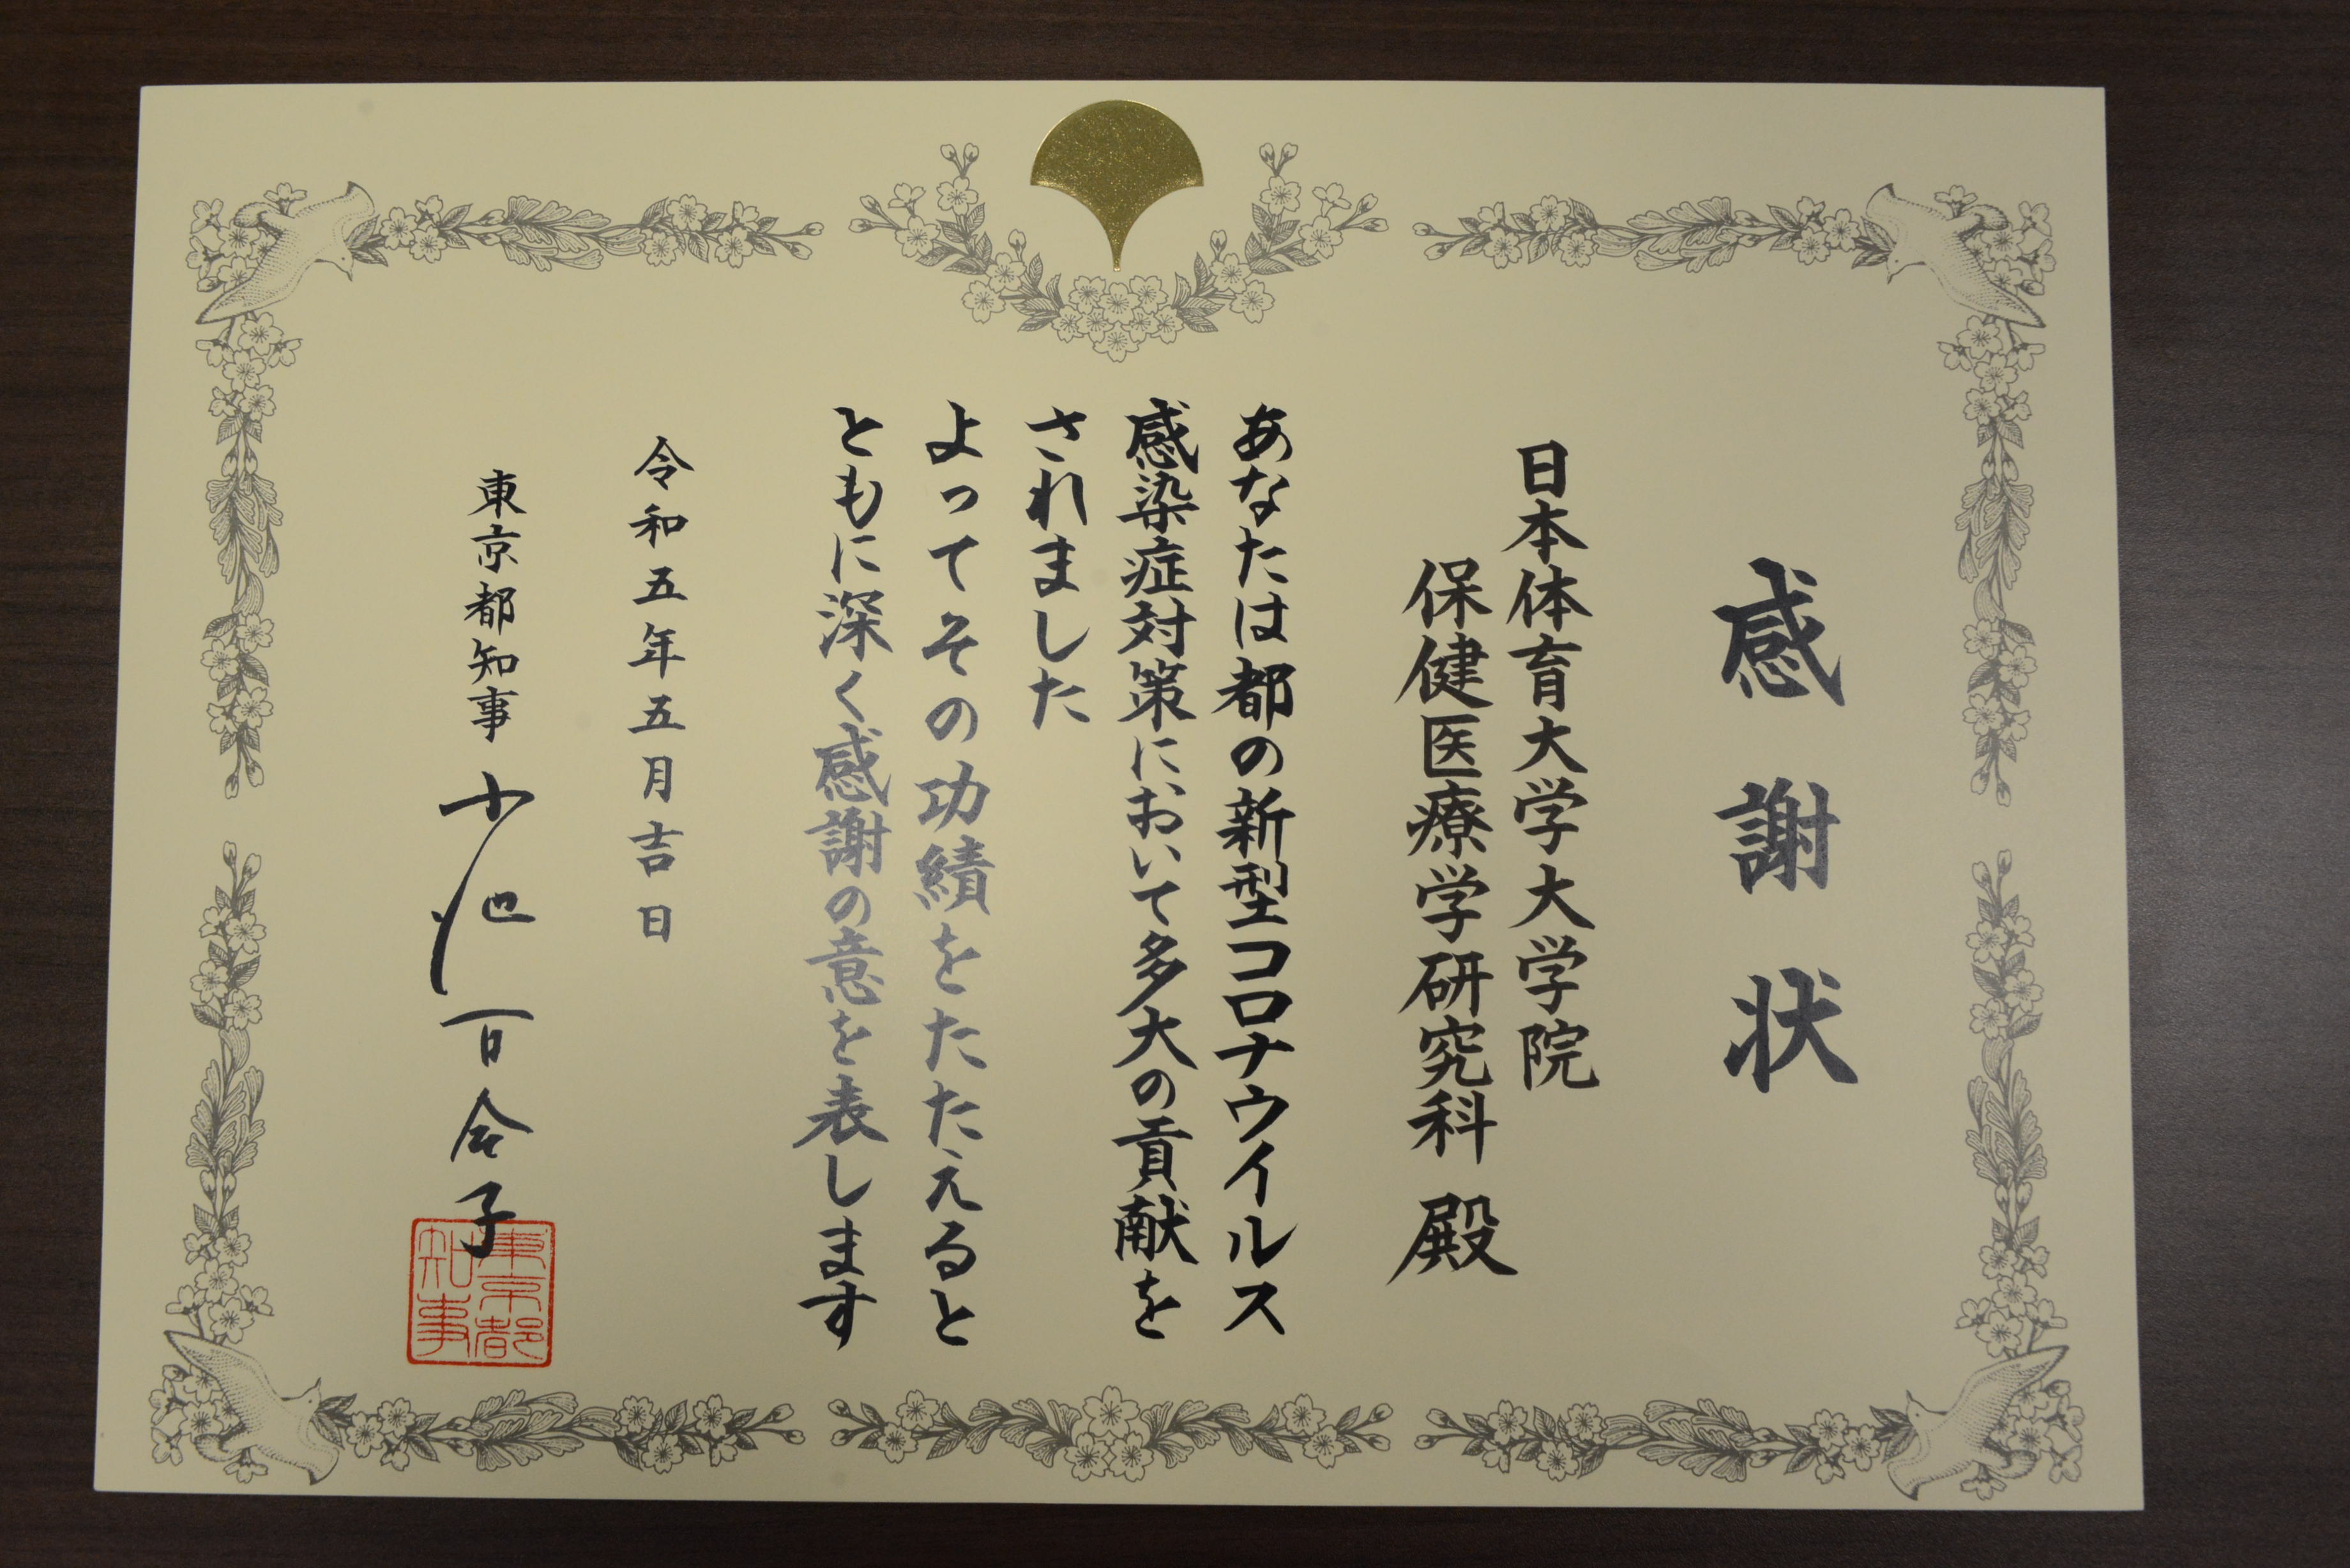 感謝状
日本体育大学大学院
保健医療学研究科 殿
あなたは都の新型コロナウイルス
感染症対策において多大の貢献を
されました
よってその功績をたたえると
ともに深く感謝の意を表します
令和五年五月吉日
東京都知事 小池百合子
東京都
知事